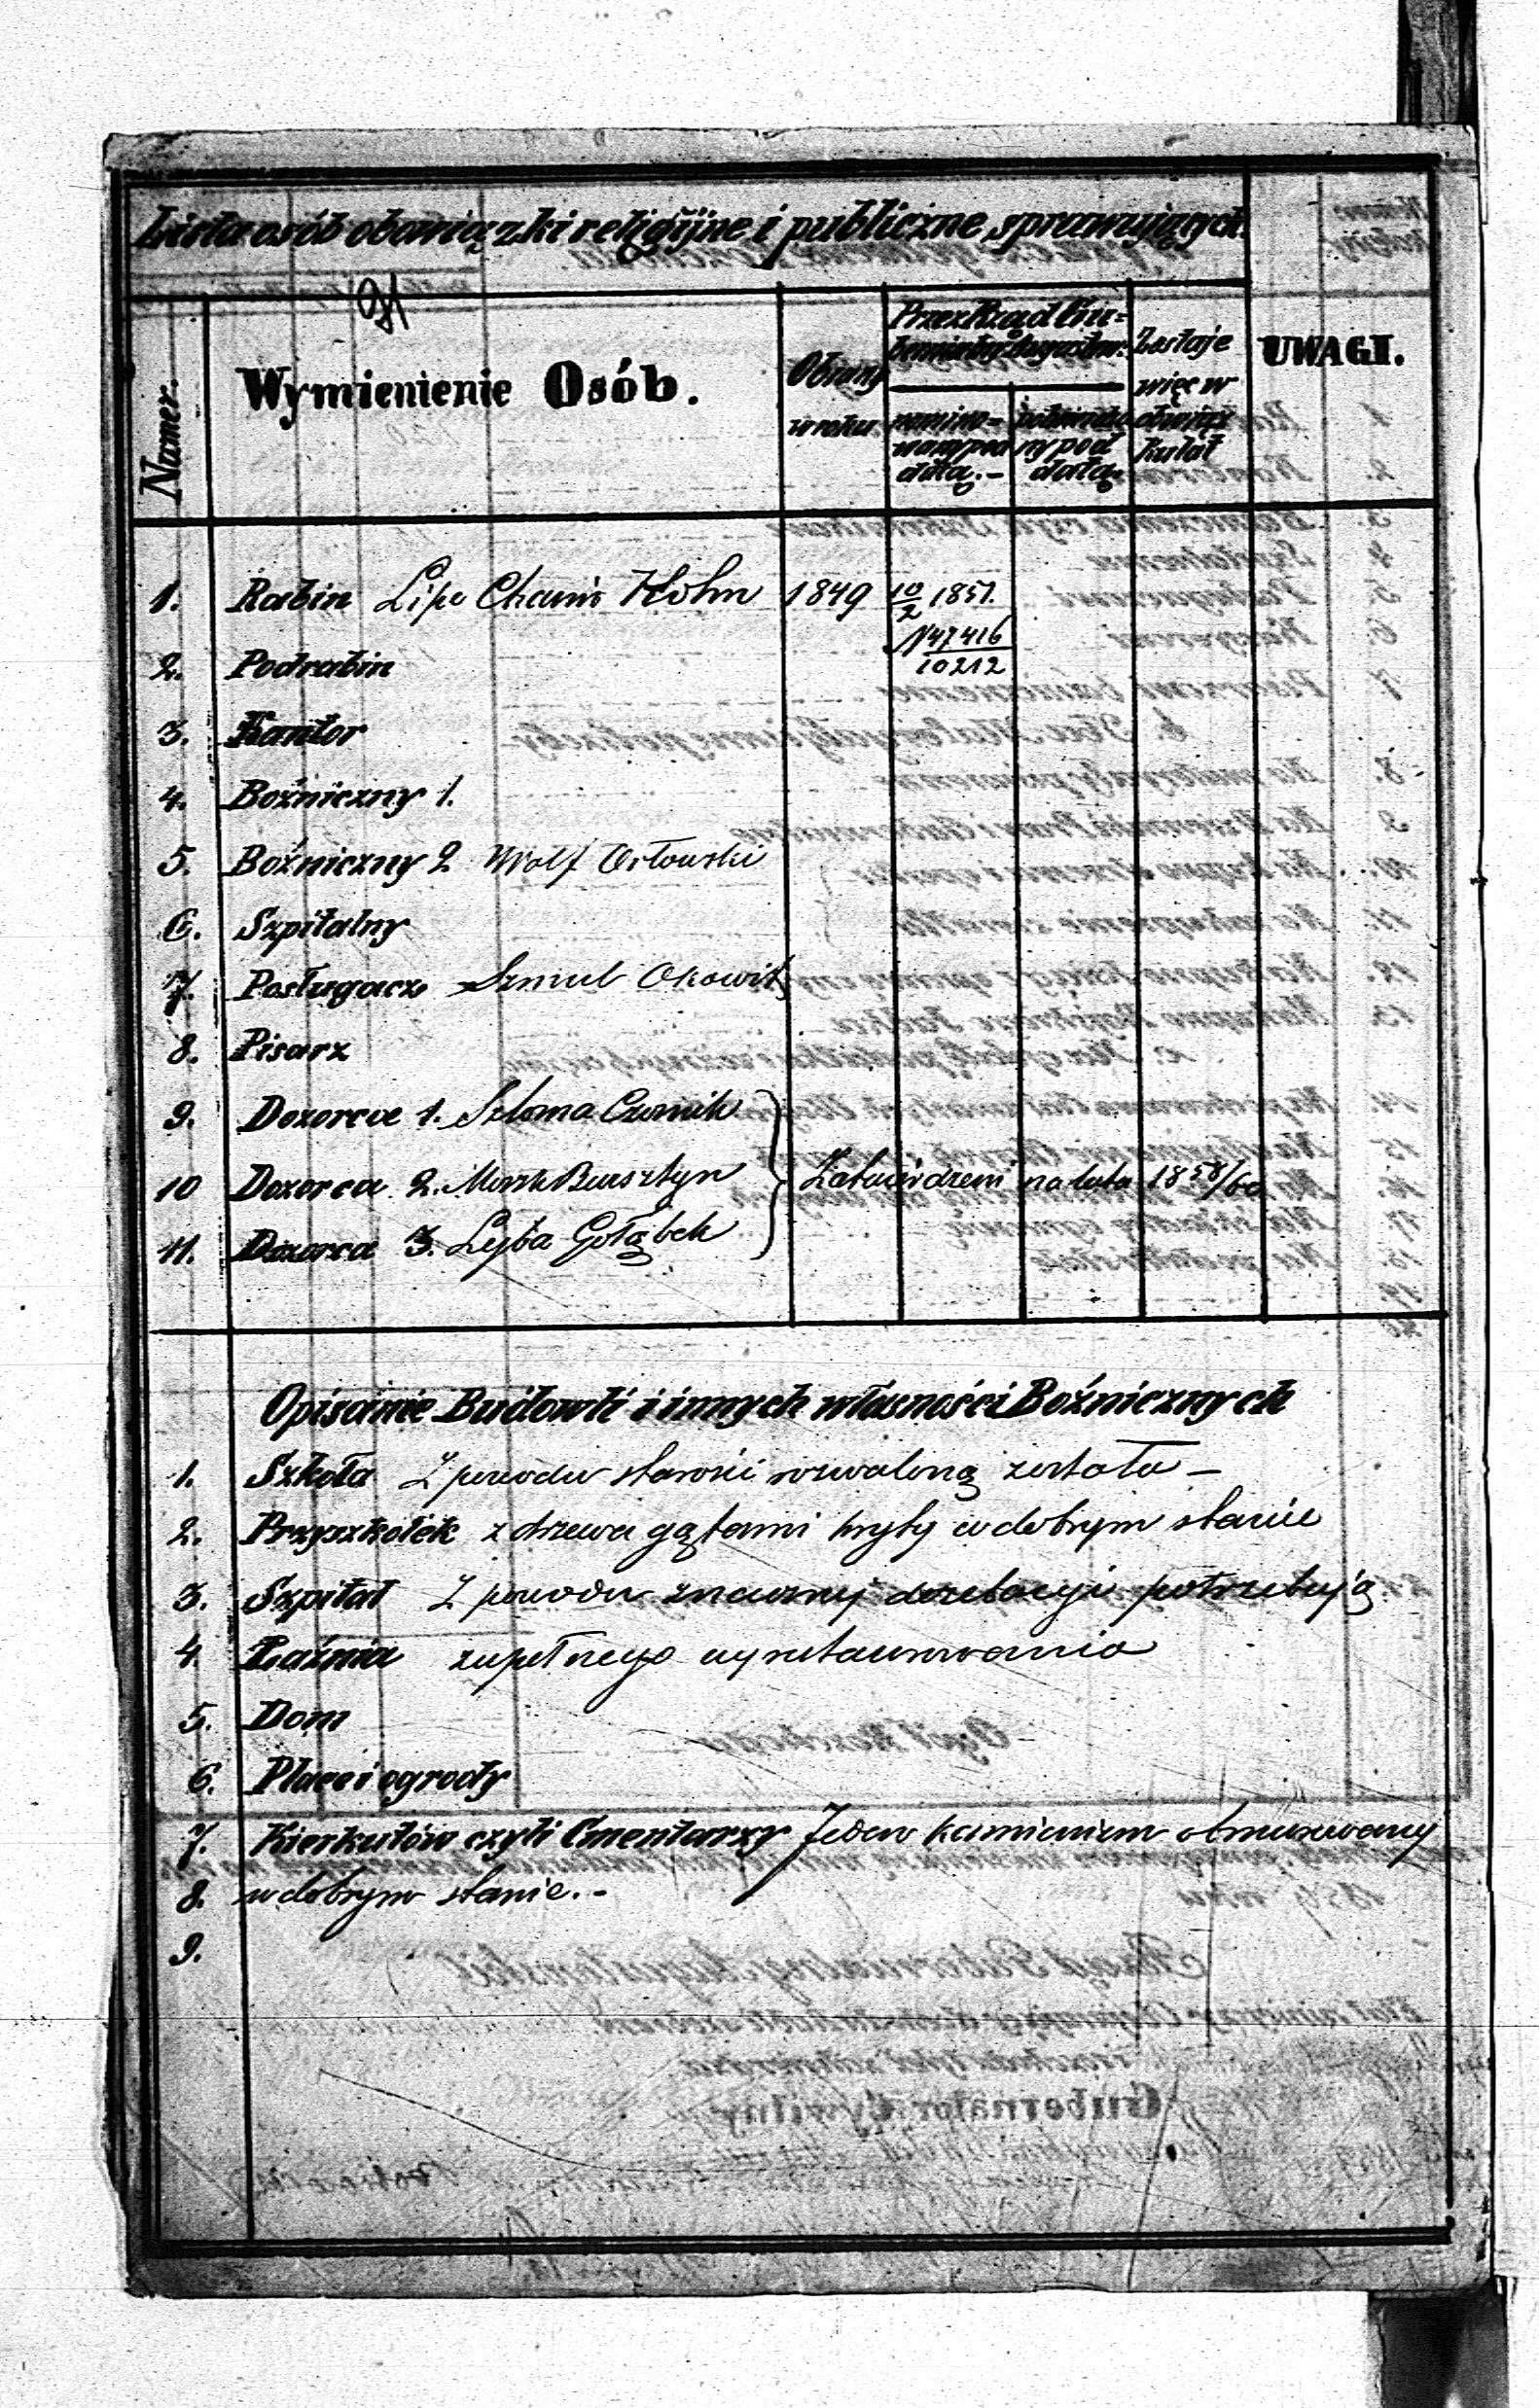 Lista osób obowiązki religijne i publiczne sprawujących.
91
Numer.
Wymienienie Osób.
Obrany w roku
Przez Rząd Gubernialny Augustow:
nominowany pod datą.-
potwierdzony pod datą
Zostaje więc w obowiązku lat
UWAGI.
1. Rabin Lipa Chaim Kohn 1849 10/2 1851.
N 47416/10212
2. Podrabin
3. Kantor
4. Bożniczny 1.
5. Bożniczny 2 Wolf Orłowski
6. Szpitalny
7. Posługacz Szmul Okowit
8. Pisarz
9. Dozorca 1. Szloma Czernik
10 Dozorca 2. Morsk Bursztyn } Zatwierdzeni na lata 1858/60
11. Dozorca 3. Leyba Gołąbek
Opisanie Budowli i innych własności Bożnicznych
1. Szkoła Z powodu starości rozwaloną została -
2. Przyszkołek z drzewa gątami kryty w dobrym stanie
3. Szpital Z powodu znacznej dezelacyi potrzebują
4. Łaźnia zupełnego wyrestaurowania
5. Dom
6. Place i ogrody
7. Kierkutów czyli Cmentarzy Jeden kamieniem obmurowany
8. w dobrym stanie. -
9.